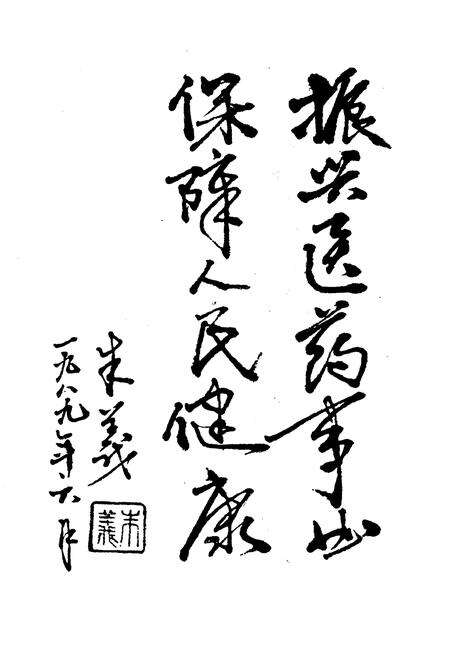 振兴医药事业
保障人民健康
朱義
一九八九年六月
朱義